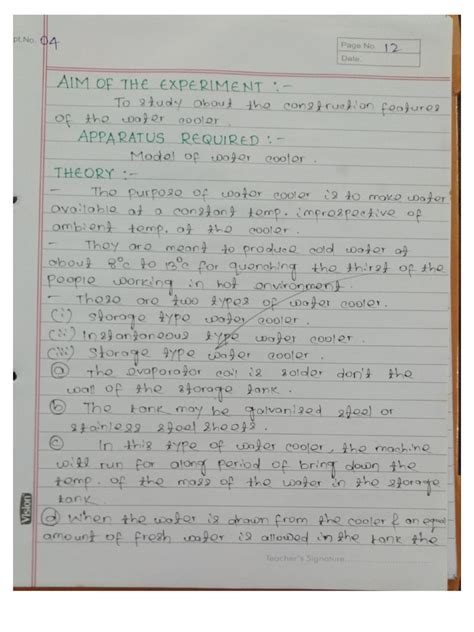 pt.No. 04
Page No. 12
Date
AIM OF THE EXPERIMENT :-
To study about the construction features
of the water cooler.
APPARATUS REQUIRED :-
Model of water cooler.
THEORY :-
- The purpose of water cooler is to make water
available at a constant temp. imprespective of
ambient temp. at the cooler.
- They are meant to produce cold water at
about 8°c to 13°c for quenching the thirst of the
people working in hot environment.
- There are two types of water cooler.
(i) storage type water cooler.
(ii) Instantaneous type water cooler.
(iii) Storage type water cooler.
(a) The evaporator coil is solder don't the
wall of the storage tank.
(b) The tank may be galvanised steel or
stainless steel sheets.
(c) In this type of water cooler, the machine
will run for along period of bring down the
temp. of the mass of the water in the storage
tank.
(d) When the water is drawn from the cooler & an equal
amount of fresh water is allowed in the tank the
Vision
Teacher's Signature